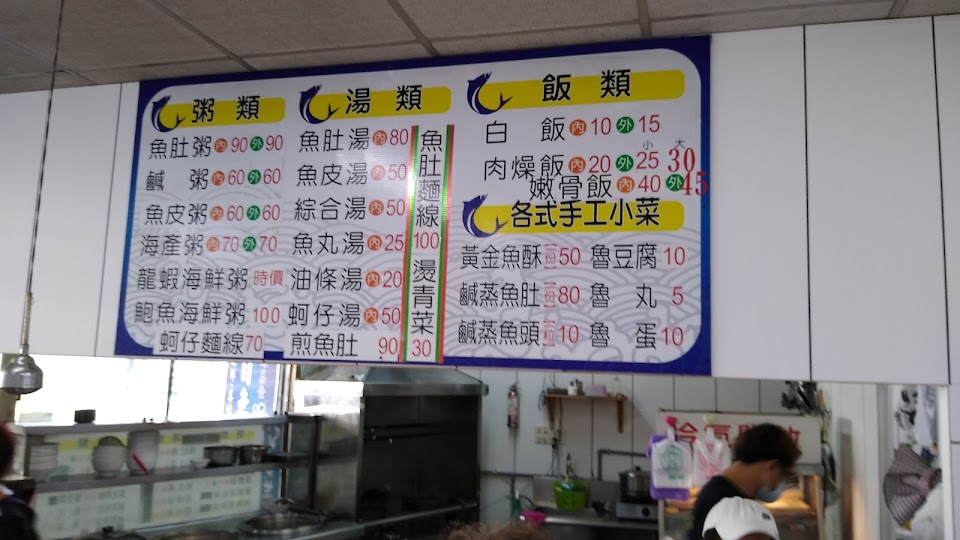 粥類
魚肚粥 內 90 外 90
鹹粥 內 60 外 60
魚皮粥 內 60 外 60
海產粥 內 70 外 70
龍蝦海鮮粥 時價
鮑魚海鮮粥 100
蚵仔麵線 70
湯類
魚肚湯 內 80
魚皮湯 內 50
綜合湯 內 50
魚丸湯 內 25
油條湯 內 20
蚵仔湯 內 50
煎魚肚 90
魚肚麵線 100
燙青菜 30
飯類
白飯 內 10 外 15
小 大
肉燥飯 內 20 外 25 30
嫩骨飯 內 40 外 45
各式手工小菜
黃金魚酥 一份 50 魯豆腐 10
鹹蒸魚肚 一份 80 魯丸 5
鹹蒸魚頭 一粒 10 魯蛋 10
冷氣開放